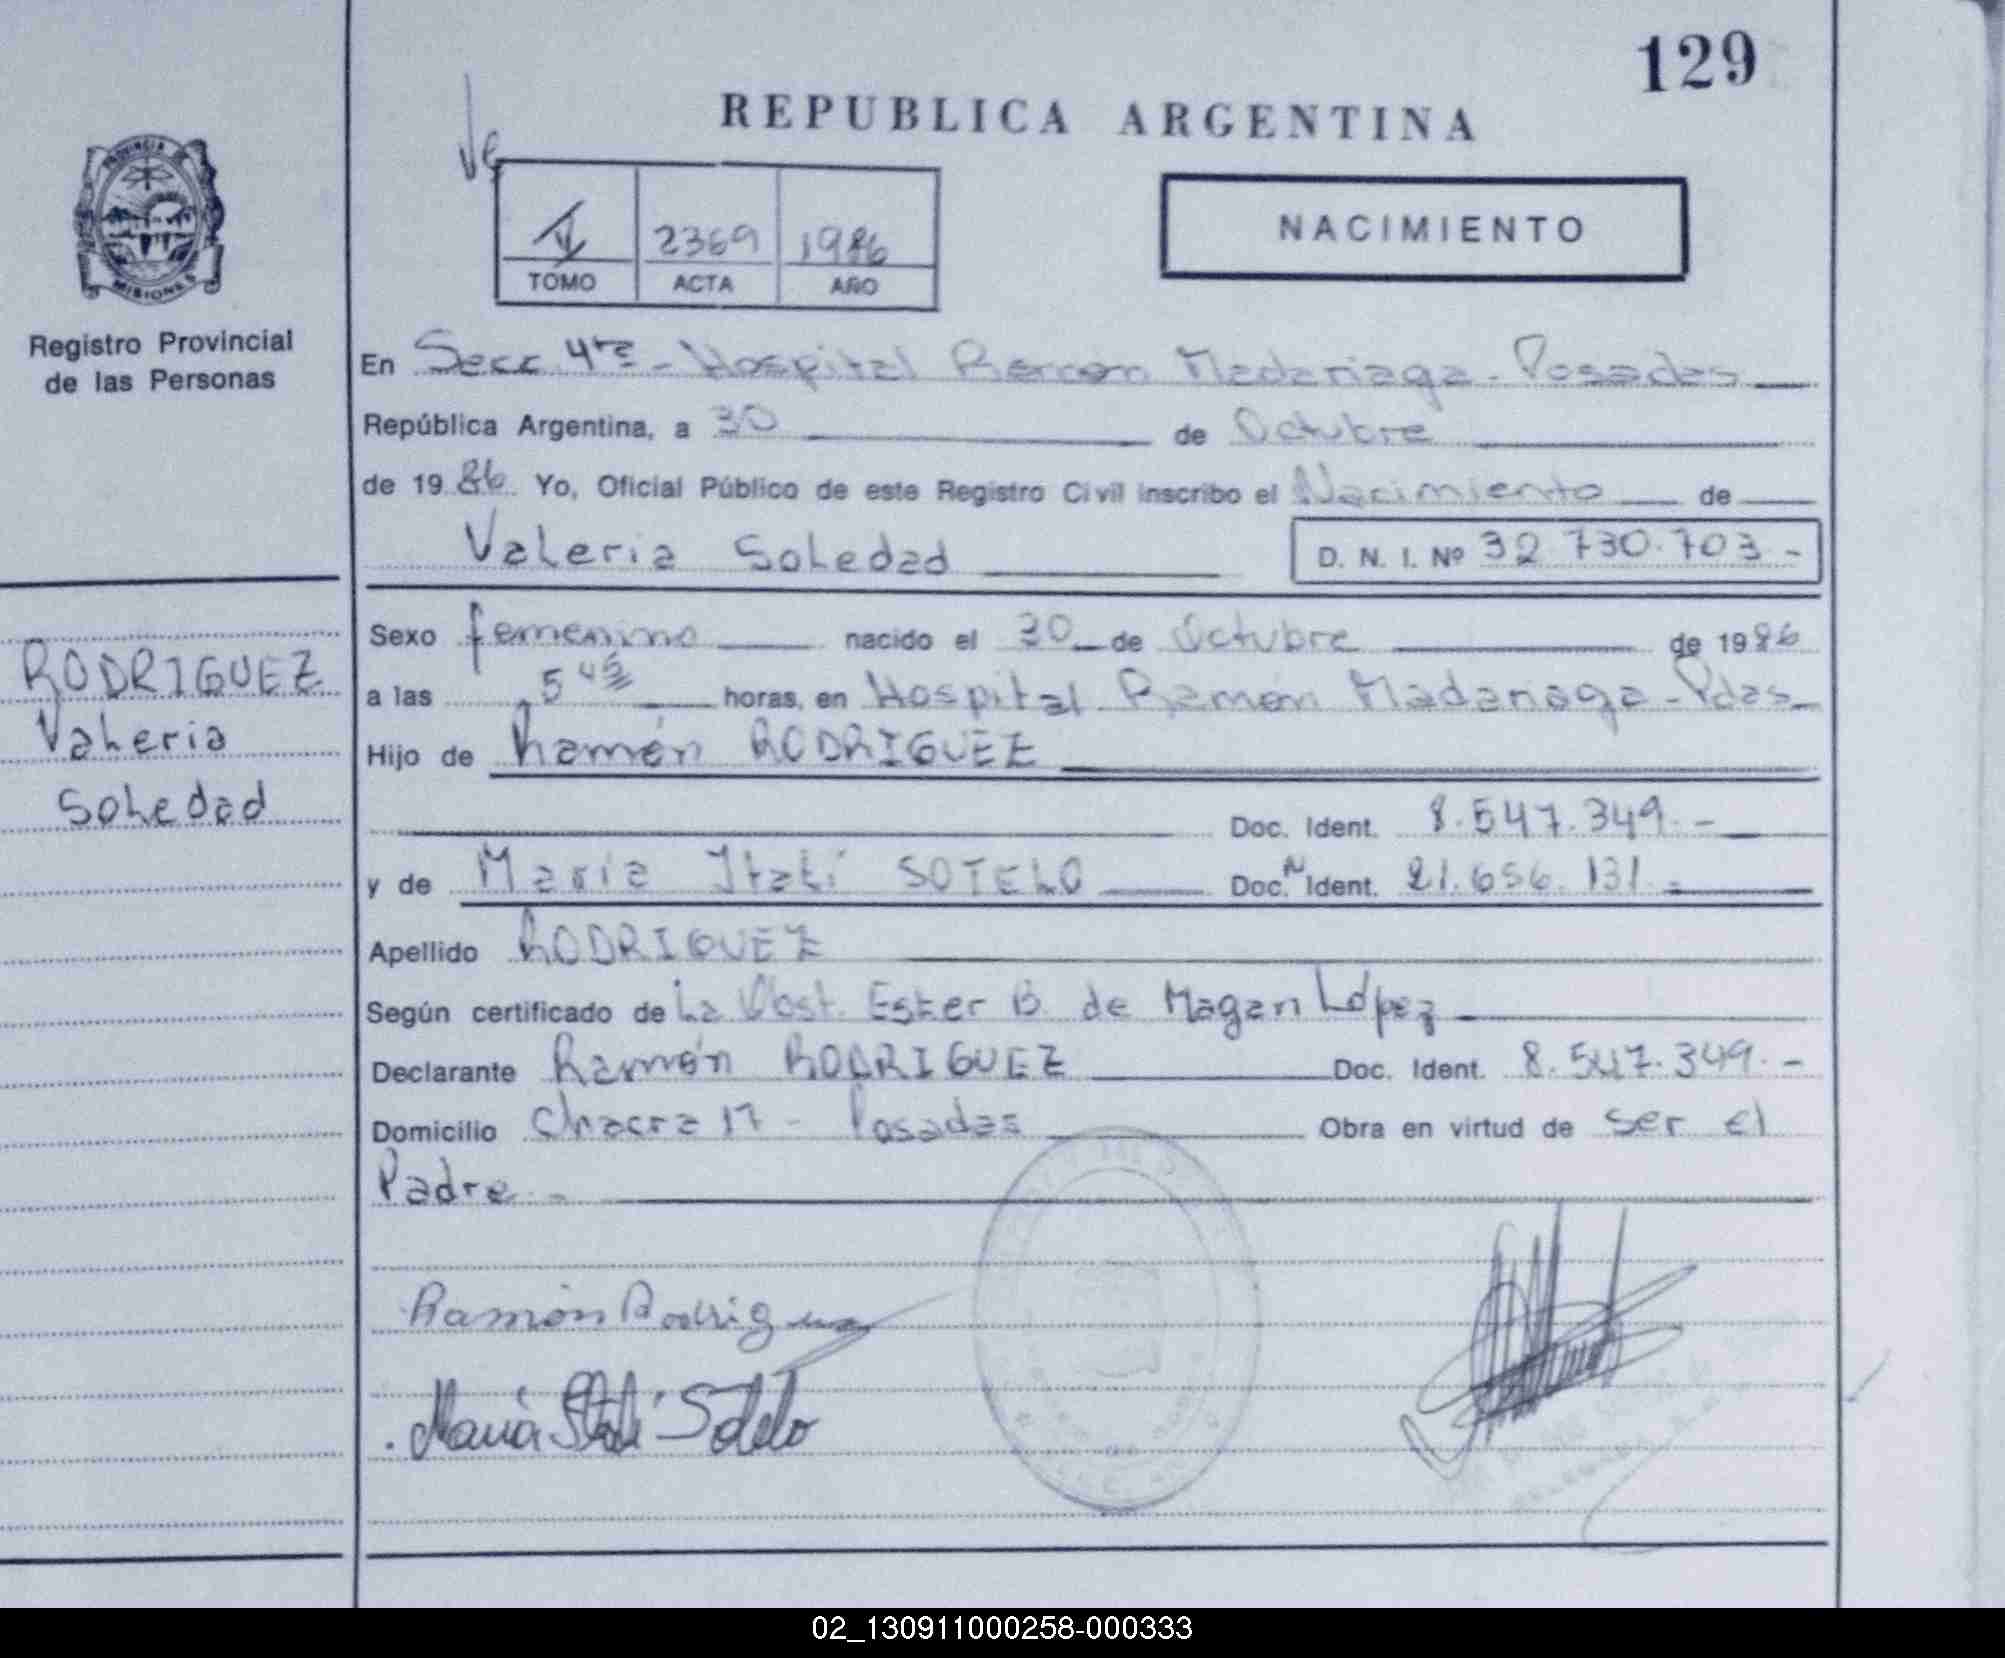 129
REPUBLICA ARGENTINA
PROVINCIA DE
MISIONES
Registro Provincial
de las Personas
2369 1986
TOMO ACTA AÑO
NACIMIENTO
En Secc. 4ta - Hospital Ramón Madariaga - Posadas
República Argentina, a 30 de Octubre
de 1986 Yo, Oficial Público de este Registro Civil inscribo el Nacimiento de
Valeria Soledad D. N. I. Nº 32.730.703.-
RODRIGUEZ
Valeria
Soledad
Sexo femenino nacido el 30 de Octubre de 1986
a las 5 45 horas, en Hospital Ramón Madariaga - Pdas
Hijo de Ramón RODRIGUEZ
Doc. Ident. 8.547.349.-
y de María Itatí SOTELO Doc. N Ident. 21.656.131.-
Apellido RODRIGUEZ
Según certificado de La Obst. Ester B. de Magan López
Declarante Ramón RODRIGUEZ Doc. Ident. 8.547.349.-
Domicilio Chacra 17 - Posadas Obra en virtud de ser el
Padre.-
Ramón Rodriguez
María Itatí Sotelo
02_130911000258-000333